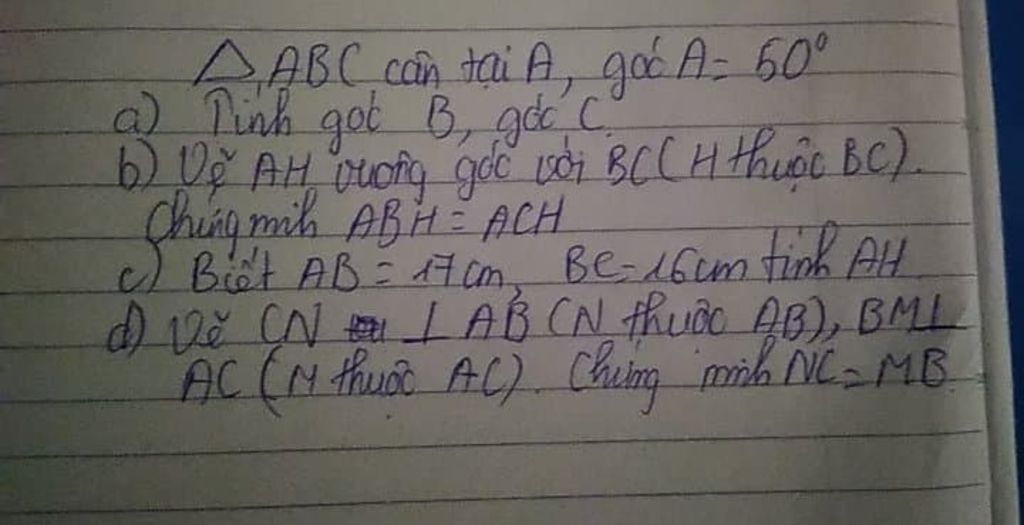 △ ABC cân tại A, góc A = 50°
a) Tính góc B, góc C.
b) Vẽ AH vuông góc với BC (H thuộc BC).
Chứng mih ABH = ACH
c) Biết AB = 17 cm, BC = 16 cm tính AH
d) Vẽ CN ⊥ AB (N thuộc AB), BM ⊥
AC (M thuộc AC). Chứng minh NC = MB